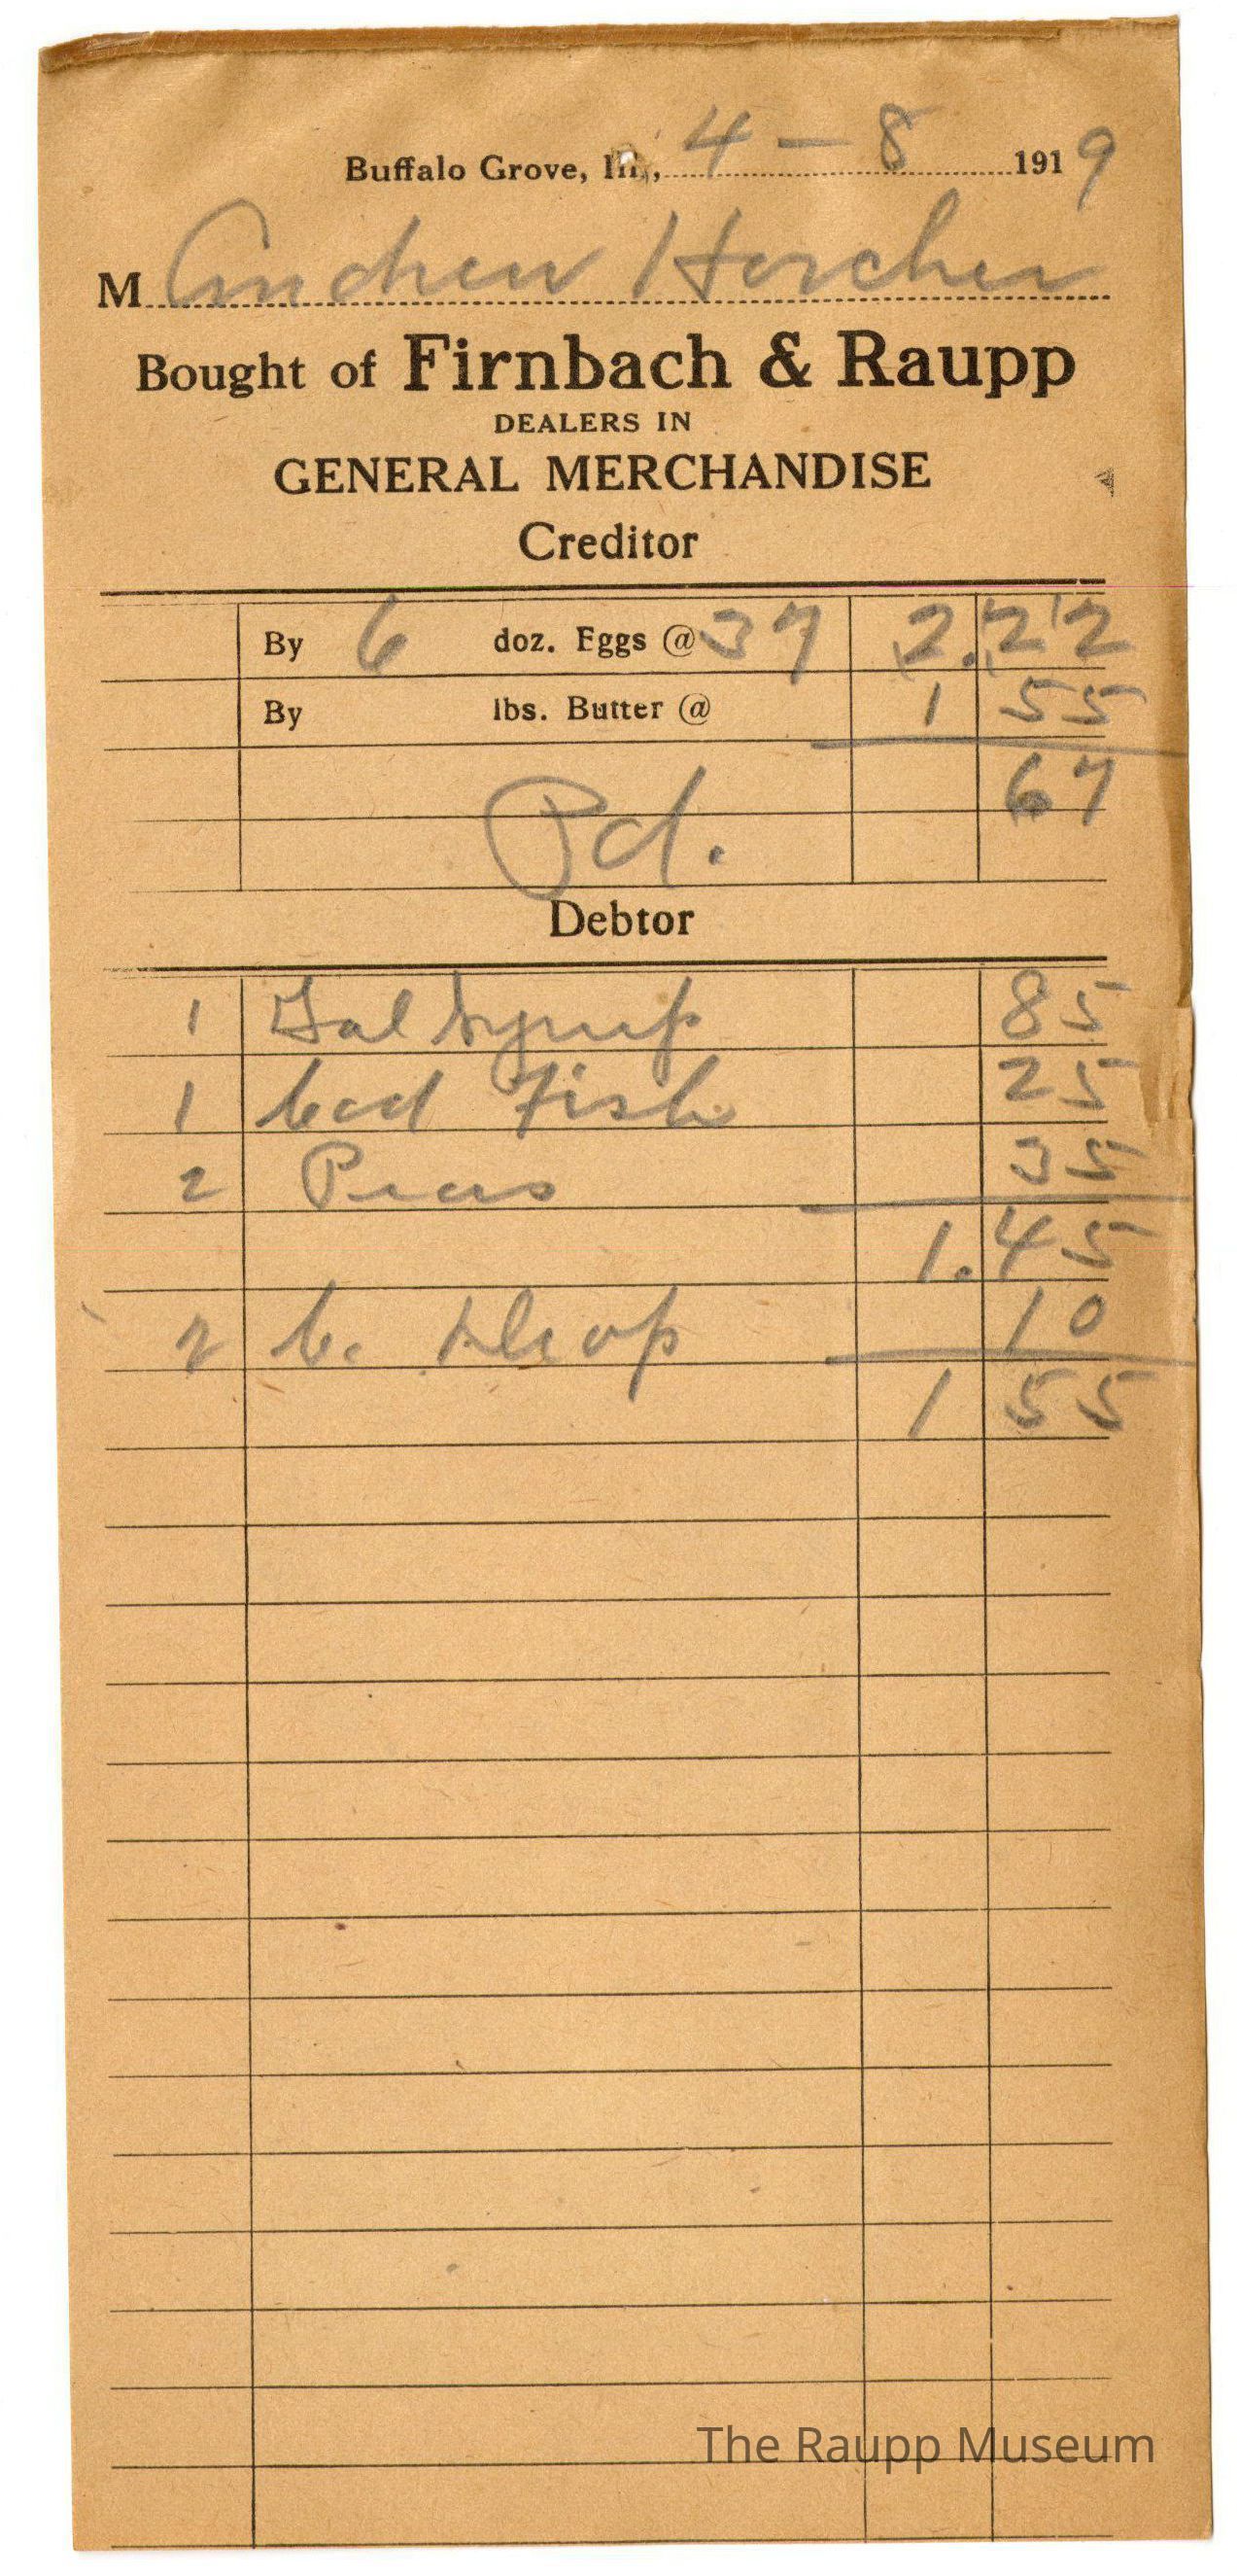 Buffalo Grove, Ill., 4 - 8 1919
M Andrew Horcher
Bought of Firnbach & Raupp
DEALERS IN
GENERAL MERCHANDISE
Creditor
By 6 doz. Eggs @ 37 2.22
By lbs. Butter @ 1 55
67
Pd.
Debtor
1 Gal Syrup 85
1 Cod Fish 25
2 Peas 35
1.45
2 c. 10
1 55
The Raupp Museum